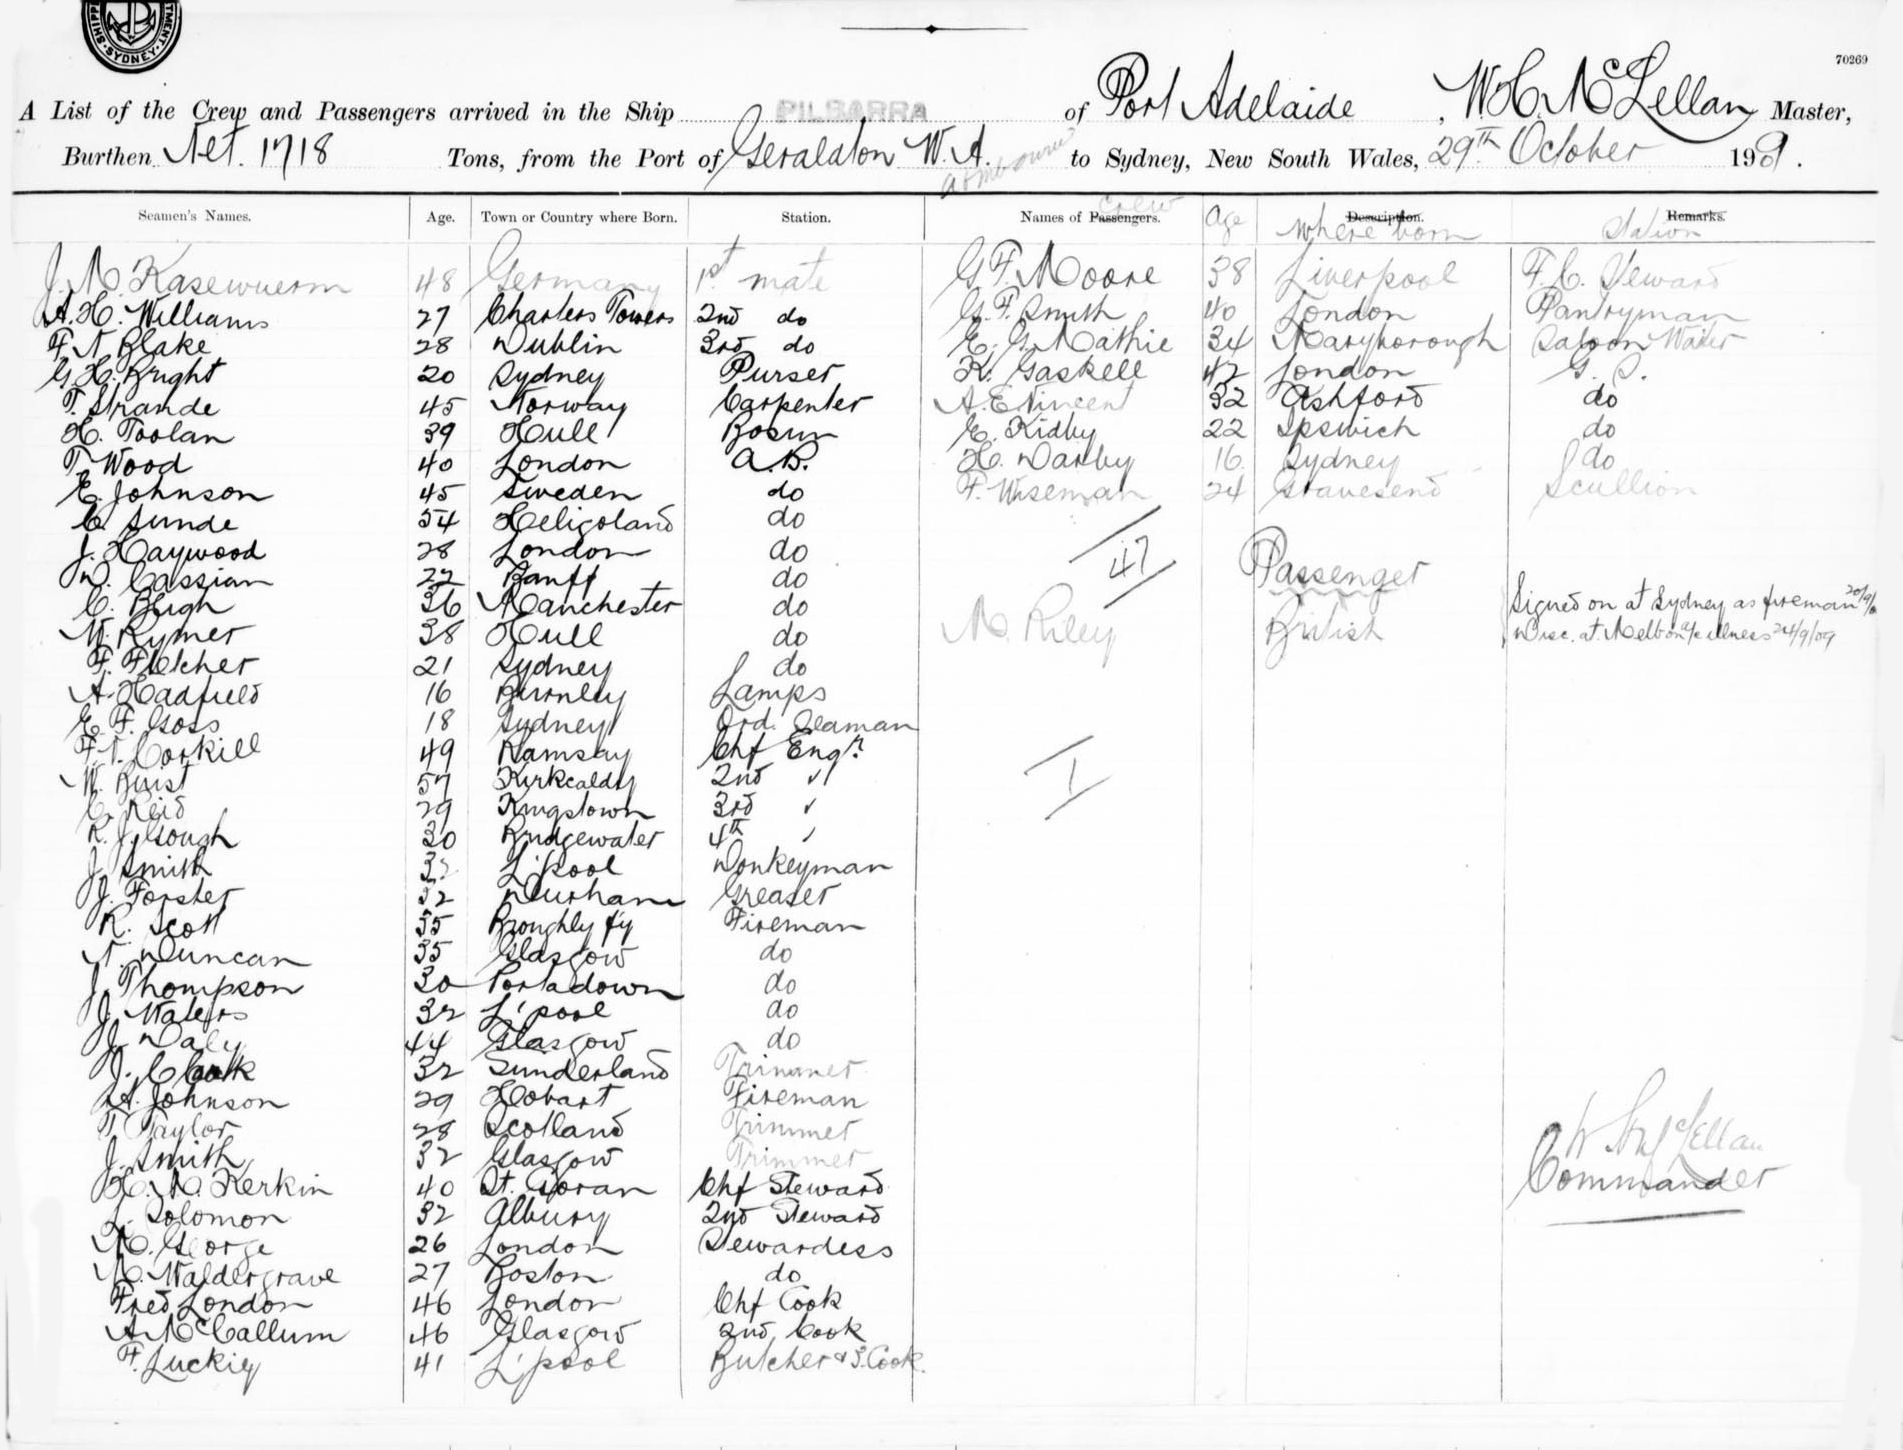 SHIPP TMENT SYDNEY
70269
A List of the Crew and Passengers arrived in the Ship PILBARRA of Port Adelaide, W. H. McLellan Master,
Burthen Net. 1718 Tons, from the Port of Geraldton W. A. to Sydney, New South Wales, 29th October 1909.
Seamen's Names. Age. Town or Country where Born. Station. Names of Passengers. Crew Age Description. where born Remarks. Station
J. M. Kasewuerm 48 Germany 1st mate G F. Moore 38 Liverpool F. C. Steward
A. H. Williams 27 Charters Towers 2nd do G. F. Smith 40 London Pantryman
F N Blake 28 Dublin 3rd do E. G. Mathie 34 Maryborough Saloon Waiter
G. H. Bright 20 Sydney Purser K. Gaskell 42 London G. S.
T. Strande 45 Norway Carpenter A. E. Vincent 32 Ashford do
H. Toolan 39 Hull Bosun E. Kidby 22 Ipswich do
T. Wood 40 London A. B. H. Darby 16 Sydney do
E. Johnson 45 Sweden do F. Wiseman 24 Gravesend Scullion
C. Sunde 54 Heligoland do
J. Haywood 28 London do 47 Passenger
D. Cassian 22 Banff do
C. Bligh 36 Manchester do M. Riley British Signed on at Sydney as fireman
W. Rymer 38 Hull do Disc. at Melbon a/c illness 24/9/09
F. Fletcher 21 Sydney do
A. Hadfield 16 Burnley Lamps
E. F. Goss 18 Sydney Ord. Seaman
F. N. Corkill 49 Ramsay Chf Engr.
W. Buist 57 Kirkcaldy 2nd "
C. Reid 29 Kingstown 3rd "
R. J. Gough 30 Bridgewater 4th "
J. Smith L'pool Donkeyman
J. Forster 32 Durham Greaser
R. Scott 35 Broughly fy Fireman
N. Duncan 35 Glasgow do
J. Thompson 30 Portadown do
J. Waters 32 L'pool do
J. Daly 44 Glasgow do
J. 32 Sunderland Trimmer
A. Johnson 29 Hobart Fireman
T. Taylor 28 Scotland Trimmer
J. Smith 32 Glasgow Trimmer
H. M. Kerkin 40 St. Goran Chf Steward
L. Solomon 32 Albury 2nd Steward
M. George 26 London Stewardess
M. Waldergrave 27 Boston do
Fred London 46 London Chf Cook
A. McCallum 46 Glasgow 2nd Cook
F. Luckig 41 L'pool Butcher & 3. Cook.
1
W McLellan
Commander